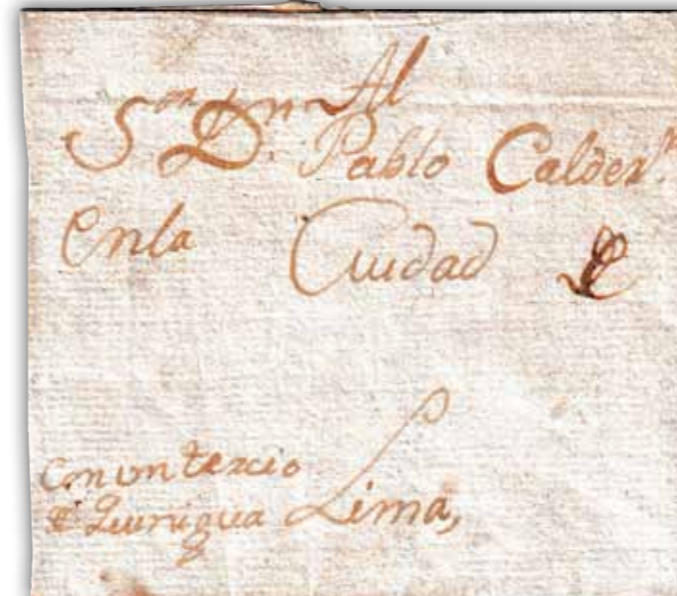 Al
S.or D.n Pablo Calder.n
Enla Ciudad
Con un tercio
Lima,